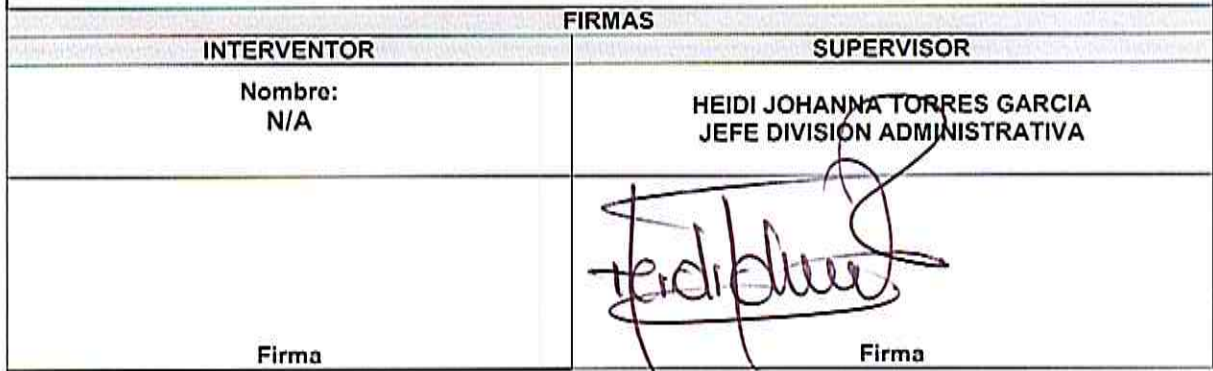 FIRMAS
INTERVENTOR
SUPERVISOR
Nombre:
N/A
HEIDI JOHANNA TORRES GARCIA
JEFE DIVISIÓN ADMINISTRATIVA
Firma
Firma